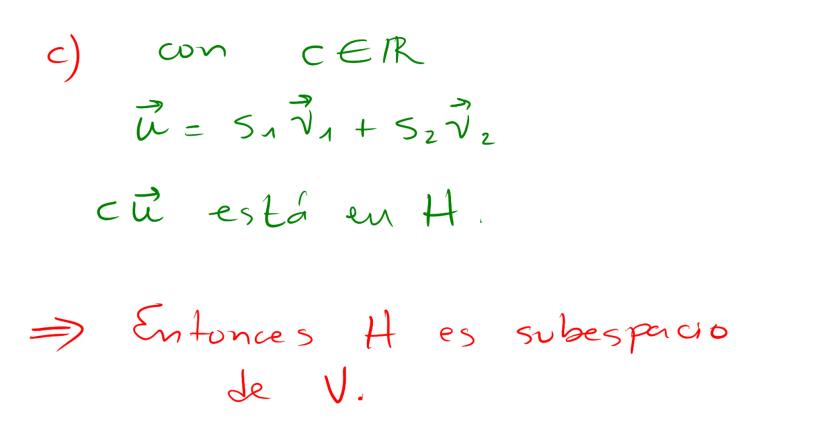 c) con c ∈ ℝ
u⃗ = s₁ v⃗₁ + s₂ v⃗₂
c u⃗ está en H.
⇒ Entonces H es subespacio
de V.